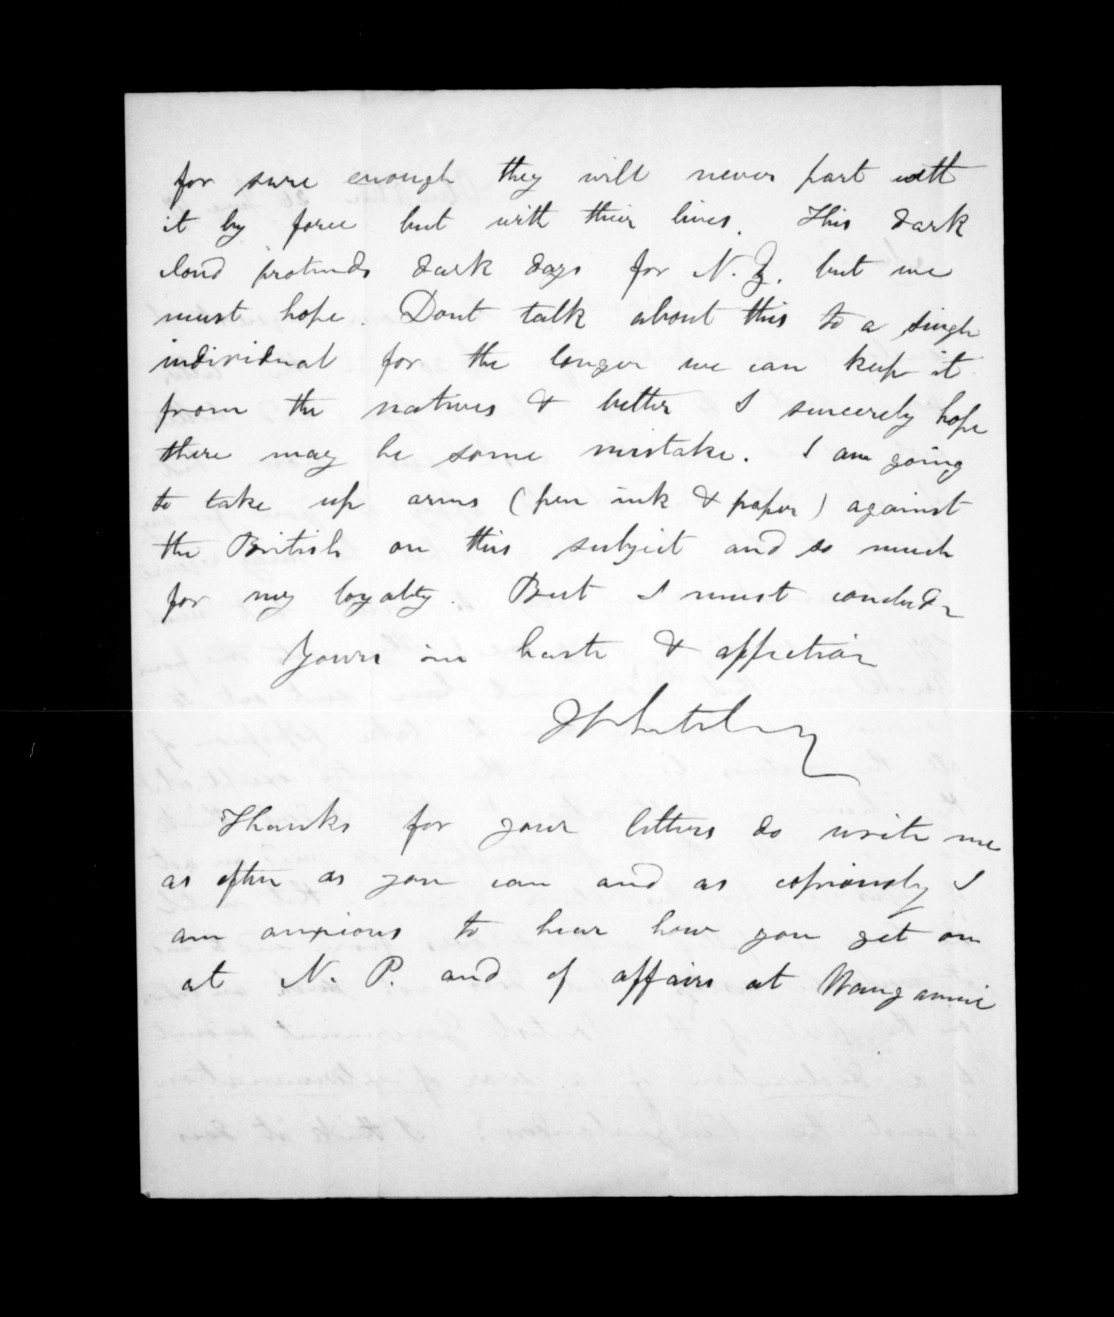 for sure enough they will never part with
it by force but with their lives. This dark
cloud protends dark days for N.Z. but we
must hope. Dont talk about this to a single
individual for the longer we can keep it
from the natives & better I sincerely hope
there may be some mistake. I am going
to take up arms (pen ink & paper) against
the British on this subject and so much
for my loyalty. But I must conclude
Yours in haste & affection
J Whiteley
Thanks for your letters do write me
as often as you can and as copiously I
am anxious to hear how you get on
at N. P. and of affairs at Wanganui